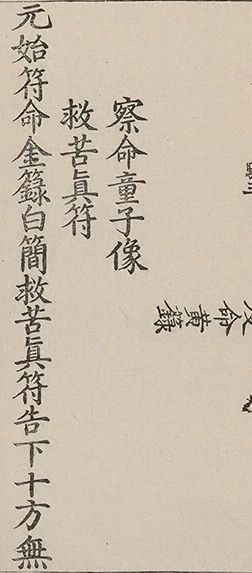 察命童子像
救苦真符
元始符命金籙白簡救苦真符告下十方無
命黃籙